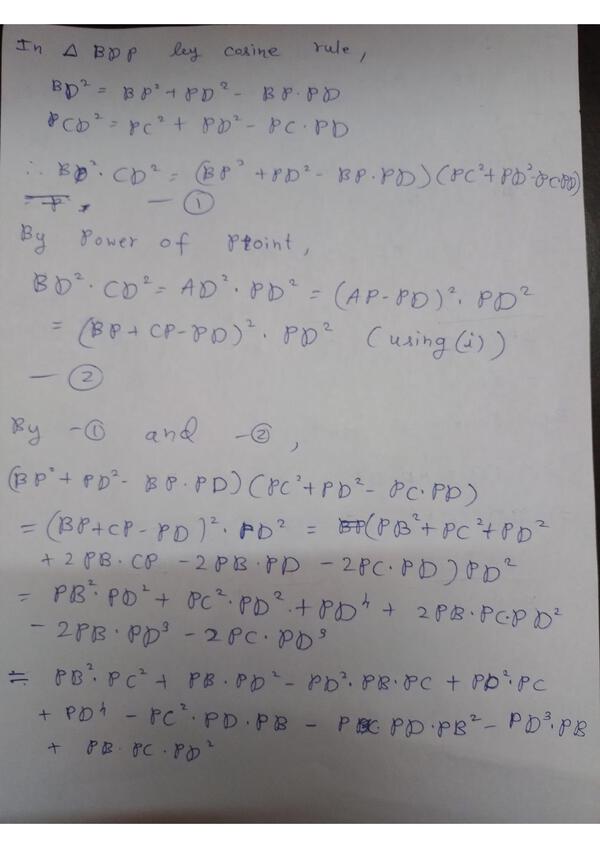 In △ BDP by cosine rule,
BD² = BP² + PD² - BP·PD
PCD² = PC² + PD² - PC·PD
∴ BD²·CD² = (BP² + PD² - BP·PD)(PC²+PD²-PC·PD)
— ①
By Power of Point,
BD²·CD² = AD²·PD² = (AP-PD)²·PD²
= (BP+CP-PD)²·PD² (using(i))
— ②
By -① and -②,
(BP²+PD²- BP·PD)(PC²+PD²- PC·PD)
= (BP+CP-PD)²·PD² = (PB²+PC²+PD²
+ 2PB·CP - 2PB·PD - 2PC·PD)PD²
= PB²·PD² + PC²·PD² + PD⁴ + 2PB·PC·PD²
- 2PB·PD³ - 2PC·PD³
= PB²·PC² + PB·PD² - PD²·PB·PC + PD²·PC
+ PD⁴ - PC²·PD·PB - PC PD·PB² - PD³·PB
+ PB·PC·PD²